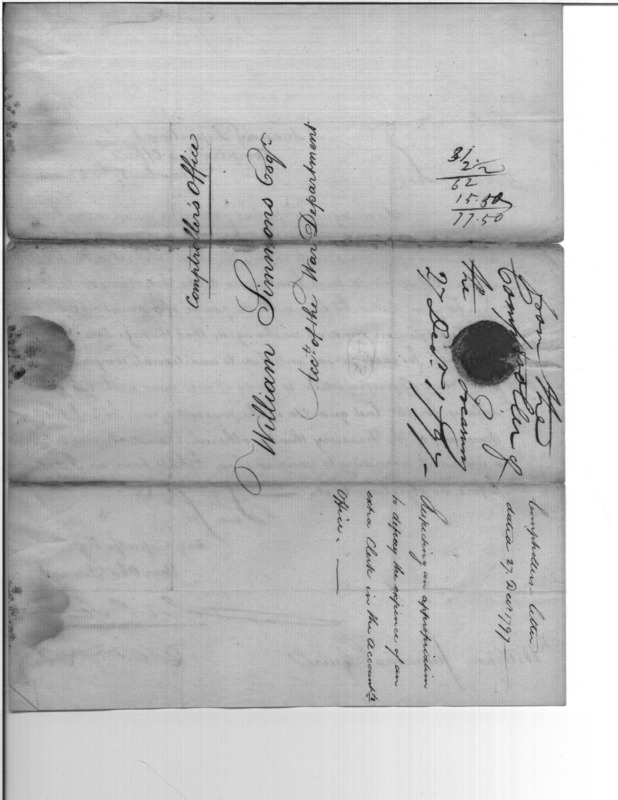 Comptroller's Office
William Simmons Esqr
Acct. of the War Department
31
2.50
62
15.50
77.50
From the
Comptroller of
the Treasury
27 Decr. 1797
Comptrollers letter
dated 27. Decr 1797
Respecting an appropriation
to defray the expence of an
extra Clerk in the Accounts
Office.